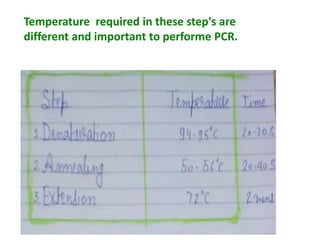 Temperature required in these step's are
different and important to performe PCR.
Step Temperature Time
1. Denaturation 94-96°C 20-30S
2. Annealing 50-56°C 20-40S
3. Extension 72°C 2 mins